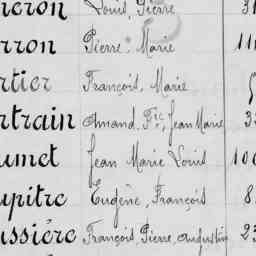 neron Louis, Pierre 31
rron Pierre, Marie 11
rtier François, Marie
rtrain Amand, Fis, Jean Marie 3
umet Jean Marie Louis 100
upitre Eugène, François 8
ussière François, Pierre, Augustin 23